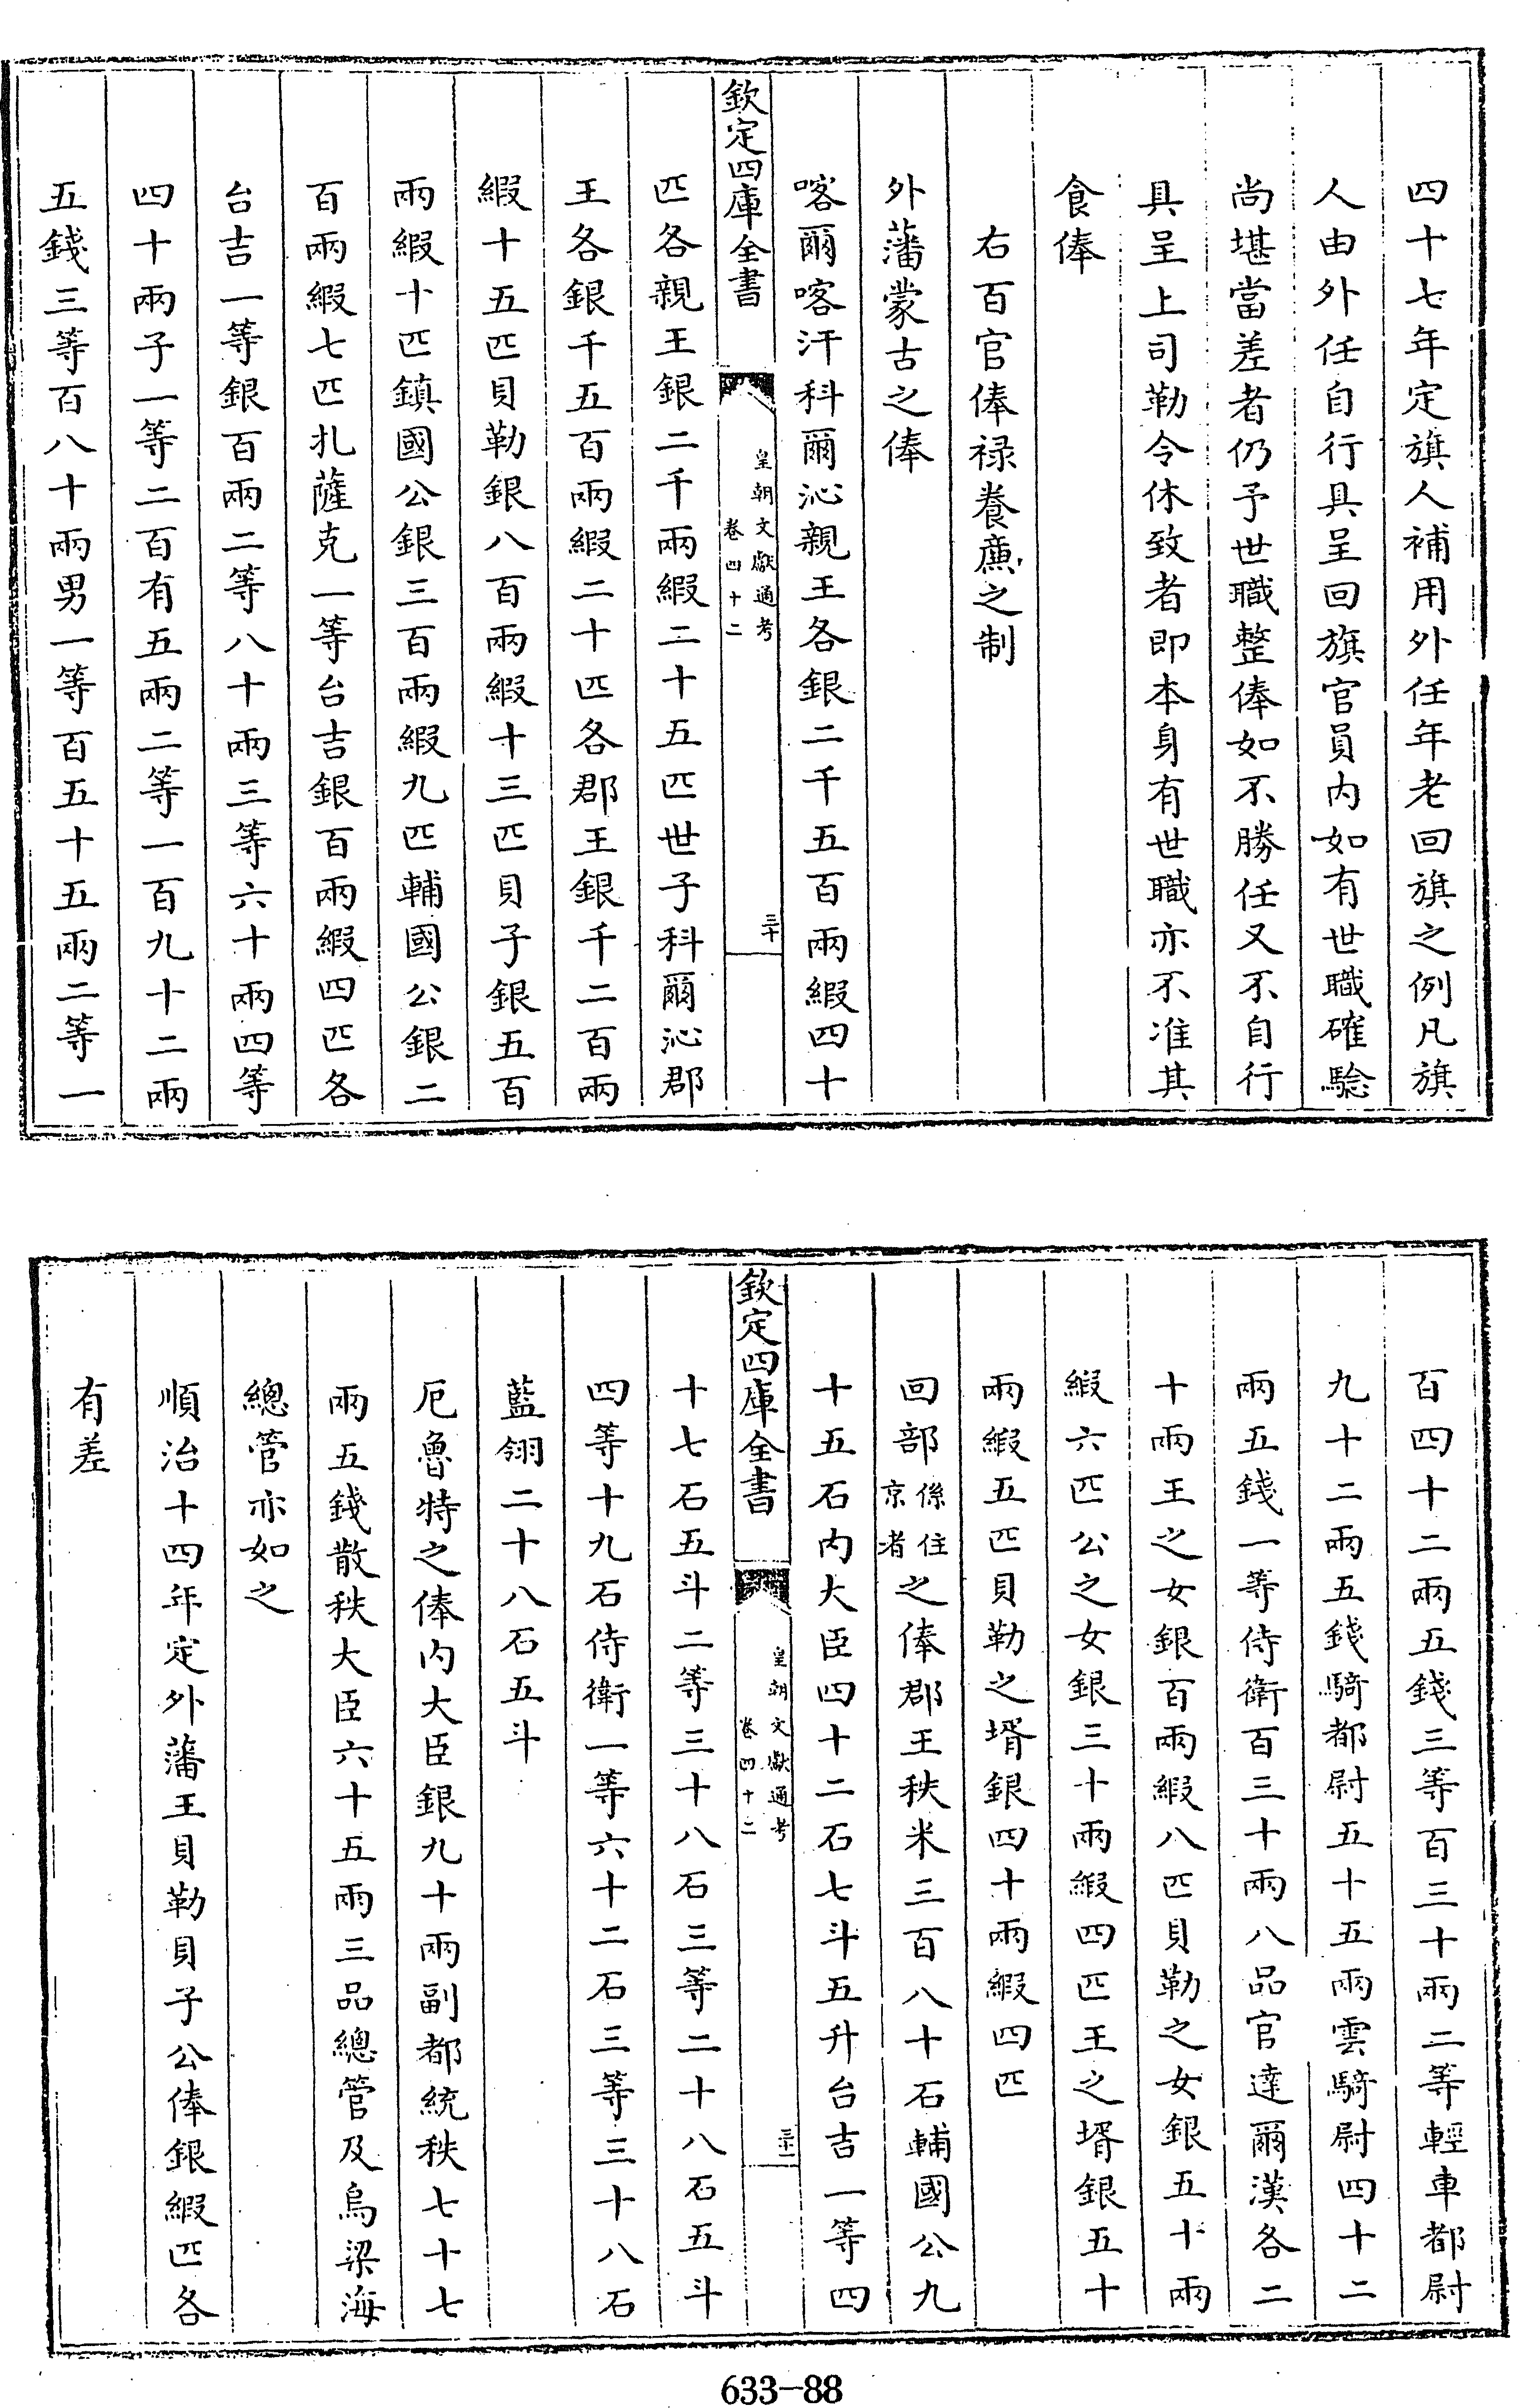 四十七年定旗人補用外任年老回旗之例凡旗
人由外任自行具呈回旗官員内如有世職確驗
尚堪當差者仍予世職整俸如不勝任又不自行
具呈上司勒令休致者即本身有世職亦不准其
食俸
右百官俸禄養廉之制
外藩蒙古之俸
喀爾喀汗科爾沁親王各銀二千五百兩緞四十
欽定四庫全書
皇朝文獻通考
卷四十二
三十
匹各親王銀二千兩緞二十五匹世子科爾沁郡
王各銀千五百兩緞二十匹各郡王銀千二百兩
緞十五匹貝勒銀八百兩緞十三匹貝子銀五百
兩緞十匹鎮國公銀三百兩緞九匹輔國公銀二
百兩緞七匹扎薩克一等台吉銀百兩緞四匹各
台吉一等銀百兩二等八十兩三等六十兩四等
四十兩子一等二百有五兩二等一百九十二兩
五錢三等百八十兩男一等百五十五兩二等一
百四十二兩五錢三等百三十兩二等輕車都尉
九十二兩五錢騎都尉五十五兩雲騎尉四十二
兩五錢一等侍衛百三十兩八品官達爾漢各二
十兩王之女銀百兩緞八匹貝勒之女銀五十兩
緞六匹公之女銀三十兩緞四匹王之壻銀五十
兩緞五匹貝勒之壻銀四十兩緞四匹
回部係住京者之俸郡王秩米三百八十石輔國公九
十五石内大臣四十二石七斗五升台吉一等四
欽定四庫全書
皇朝文獻通考
卷四十二
三十一
十七石五斗二等三十八石三等二十八石五斗
四等十九石侍衛一等六十二石三等三十八石
藍翎二十八石五斗
厄魯特之俸内大臣銀九十兩副都統秩七十七
兩五錢散秩大臣六十五兩三品總管及烏梁海
總管亦如之
順治十四年定外藩王貝勒貝子公俸銀緞匹各
有差
633-88